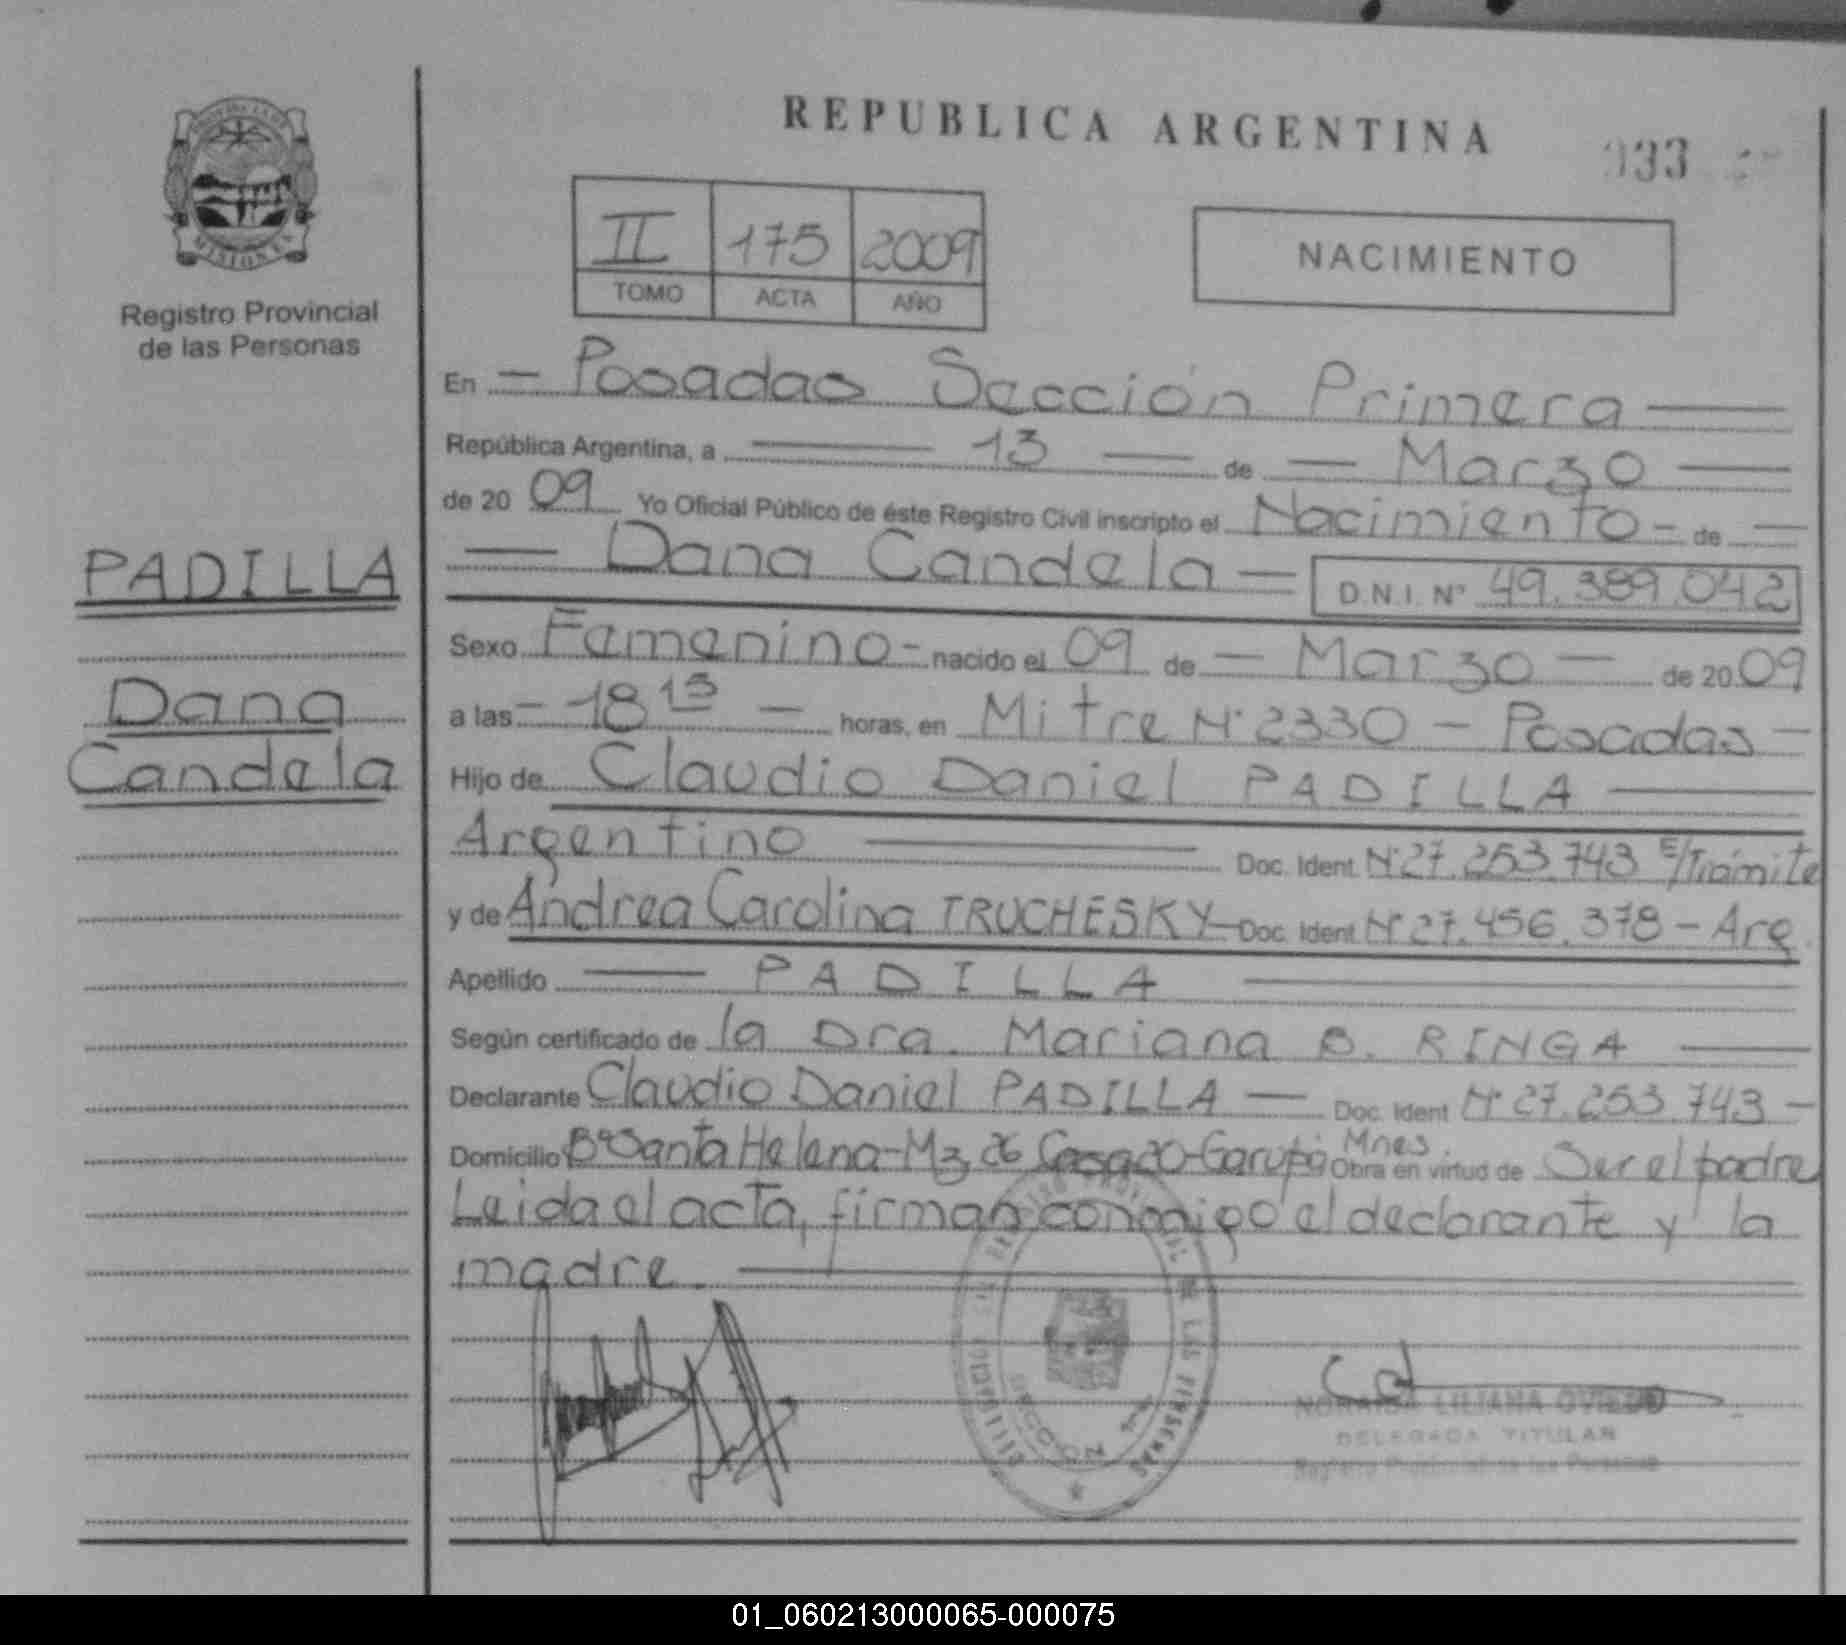 REPUBLICA ARGENTINA
033
PROVINCIA DE
MISIONES
Registro Provincial
de las Personas
II 175 2009
TOMO ACTA AÑO
NACIMIENTO
En – Posadas Sección Primera —
República Argentina, a — 13 — de — Marzo —
de 2009 Yo Oficial Público de éste Registro Civil inscripto el Nacimiento – de —
— Dana Candela — D.N.I. N° 49.389.042
PADILLA
Dana
Candela
Sexo Femenino – nacido el 09 de — Marzo — de 2009
a las – 18 15 – horas, en Mitre N° 2330 – Posadas –
Hijo de Claudio Daniel PADILLA —
Argentino — Doc. Ident. N° 27.253.743 E/Trámite
y de Andrea Carolina TRUCHESKY – Doc. Ident. N° 27.456.378 – Arg.
Apellido — PADILLA —
Según certificado de la Dra. Mariana B. RINGA —
Declarante Claudio Daniel PADILLA — Doc. Ident N° 27.253.743 –
Domicilio B° Santa Helena – Mz 26 Casa 20 – Garupá Mnes. Obra en virtud de Ser el padre
Leida el acta, firman conmigo el declarante y la
madre.
REGISTRO PROVINCIAL DE LAS PERSONAS
SECCION 1ra
LILIANA OVIEDO
DELEGADA TITULAR
Registro Provincial de las Personas
01_060213000065-000075